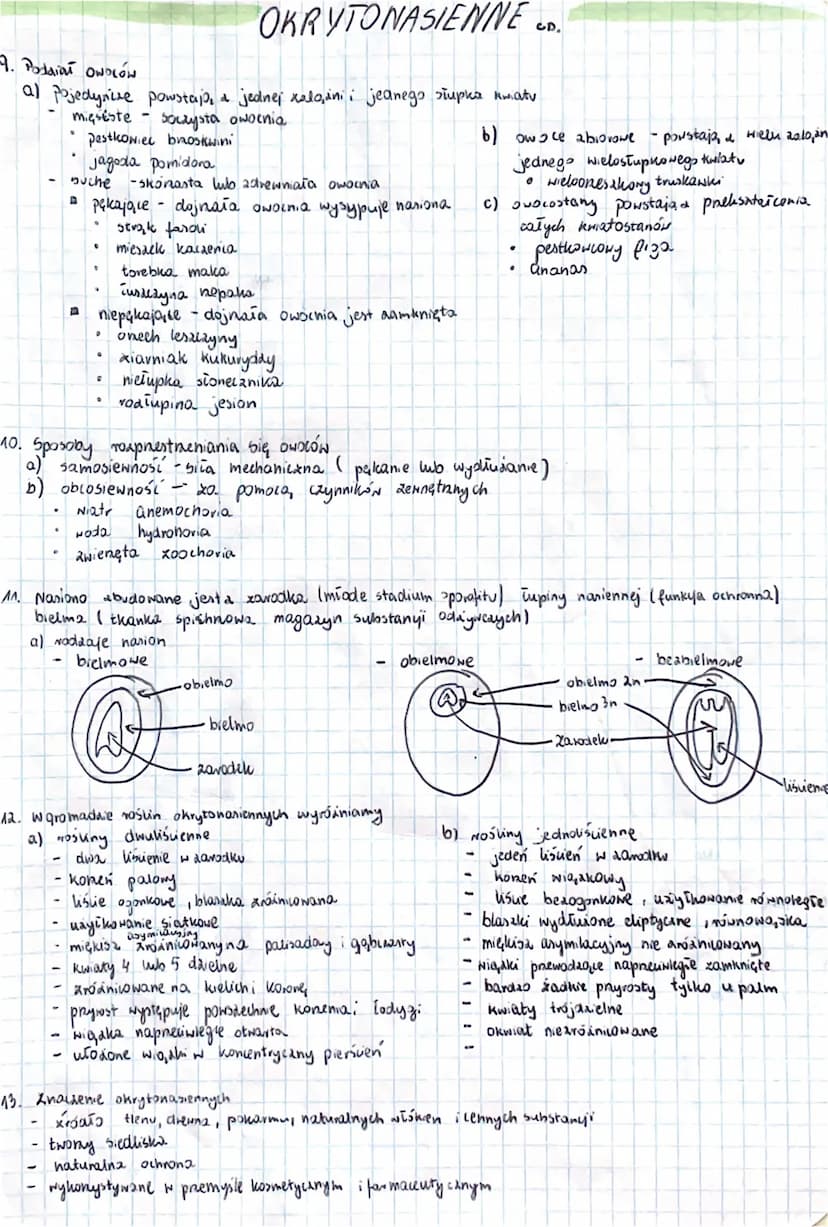 OKRYTONASIENNE CD.
9. Podział owoców
a) Pojedyncze powstają z jednej zalążni i jednego słupka kwiatu
- mięsiste - soczysta owocnia
• pestkowiec brzoskwini
• jagoda pomidora
- suche - skórzasta lub zdrewniała owocnia
▫ pękające - dojrzała owocnia wysypuje nasiona
• strąk fasoli
• mieszek kaczeńca
• torebka maka
• łuszczyna rzepaka
▫ niepękające - dojrzała owocnia jest zamknięta
• orzech leszczyny
• ziarniak kukurydzy
• niełupka słonecznika
• rozłupina jesion
b) owoce zbiorowe - powstają z wielu zalążni
jednego wielosłupkowego kwiatu
• wieloorzeszkowy truskawki
c) owocostany powstają z przekształcenia
całych kwiatostanów
• pestkowcowy figa
• ananas
10. Sposoby rozprzestrzeniania się owoców
a) samosiewność - siła mechaniczna (pękanie lub wydłużanie)
b) obcosiewność - za pomocą czynników zewnętrznych
• wiatr anemochoria
• woda hydrohoria
• zwierzęta zoochoria
11. Nasiono zbudowane jest z zarodka (młode stadium sporofitu) łupiny nasiennej (funkcja ochronna)
bielma (tkanka spichrzowa magazyn substancji odżywczych)
a) rodzaje nasion
- bielmowe
- obielmowe
- bezbielmowe
obielmo
bielmo
zarodek
obielmo 2n
bielmo 3n
zarodek
liścienie
12. W gromadzie roślin okrytonasiennych wyróżniamy
a) rośliny dwuliścienne
- dwa liścienie w zarodku
- korzeń palowy
- liście ogonkowe, blaszka zróżnicowana
- użytkowanie siatkowe
- miękisz asymilacyjny zróżnicowany na palisadowy i gąbczasty
- kwiaty 4 lub 5 dzielne
- zróżnicowane na kielich i koronę
- przyrost występuje powszechnie korzenia i łodygi
- wiązka naprzeciwległe otwarta
- ułożone wiązki w koncentryczny pierścień
b) rośliny jednoliścienne
- jeden liścień w zarodku
- korzeń wiązkowy
- liście bezogonkowe, użytkowanie równoległe
- blaszki wydłużone eliptyczne, równowąska
- miękisz asymilacyjny nie zróżnicowany
- wiązki przewodzące naprzeciwległe zamknięte
- bardzo żadkie przyrosty tylko u palm
- kwiaty trójdzielne
- okwiat niezróżnicowane
-
13. Znaczenie okrytonasiennych
- źródło tlenu, drewna, pokarmu, naturalnych włókien i cennych substancji
- tworzy siedliska
- naturalna ochrona
- wykorzystywane w przemyśle kosmetycznym i farmaceutycznym